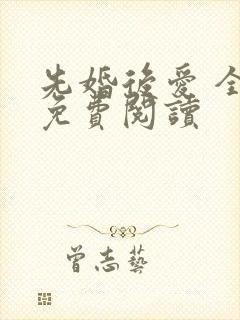 先婚後愛 全
免費閱讀
曾志藝